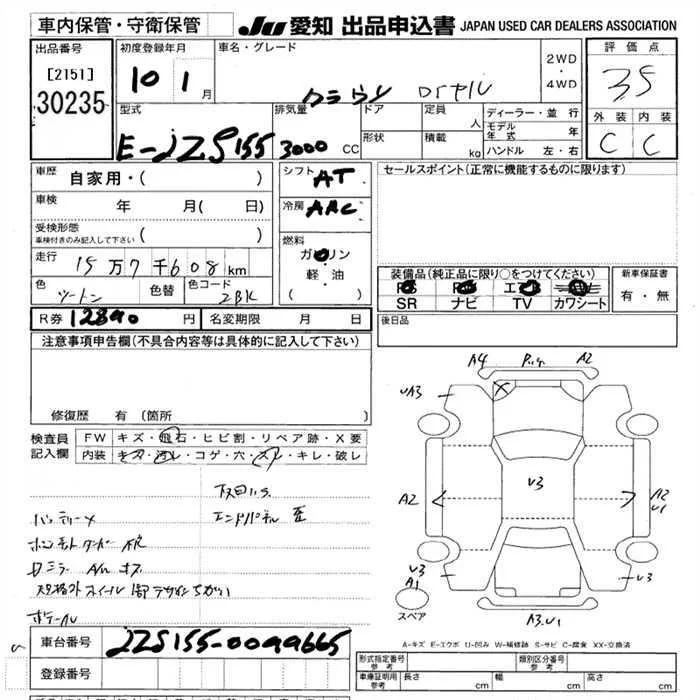 車内保管・守衛保管
JU 愛知 出品申込書 JAPAN USED CAR DEALERS ASSOCIATION
出品番号
[2151]
30235
初度登録年月
10 1 月
車名・グレード
クラウン ロイヤル
2WD
・
4WD
評価点
3.5
外装 内装
C C
型式
E-JZS155
排気量
3000 CC
ドア
形状
定員
人
積載
kg
ディーラー・並行
モデル年式 年
ハンドル 左・右
車歴 自家用・( )
車検 年 月( 日)
受検形態
車検付きのみ記入して下さい ( )
走行 15万7千608km
色 ツートン 色替 色コード 2BK
シフト AT
冷房 AAC
燃料
ガソリン
軽・油
( )
セールスポイント(正常に機能するものに限ります)
装備品(純正品に限り○をつけてください)
PS PW エアB
SR ナビ TV カワシート
新車保証書
有・無
R券 12890 円 名変期限 月 日
後日品
注意事項申告欄(不具合内容等は具体的に記入して下さい)
修復歴 有(箇所 )
検査員記入欄
FW キズ・飛石・ヒビ割・リペア跡・X要
内装 キズ・汚レ・コゲ・穴・スレ・キレ・破レ
エンドパネル 歪
A4 A2
UA3
A2 U3 A2
U1
U3
A1
スペア
U3
A3.U1
A-キズ E-エクボ U-凹み W-補修跡 S-サビ C-腐食 XX-交換済
車台番号 JZS155-0099665
登録番号
形式指定番号 参考
類別区分番号 参考
車庫証明用 参考 長さ cm 幅 cm 高さ cm